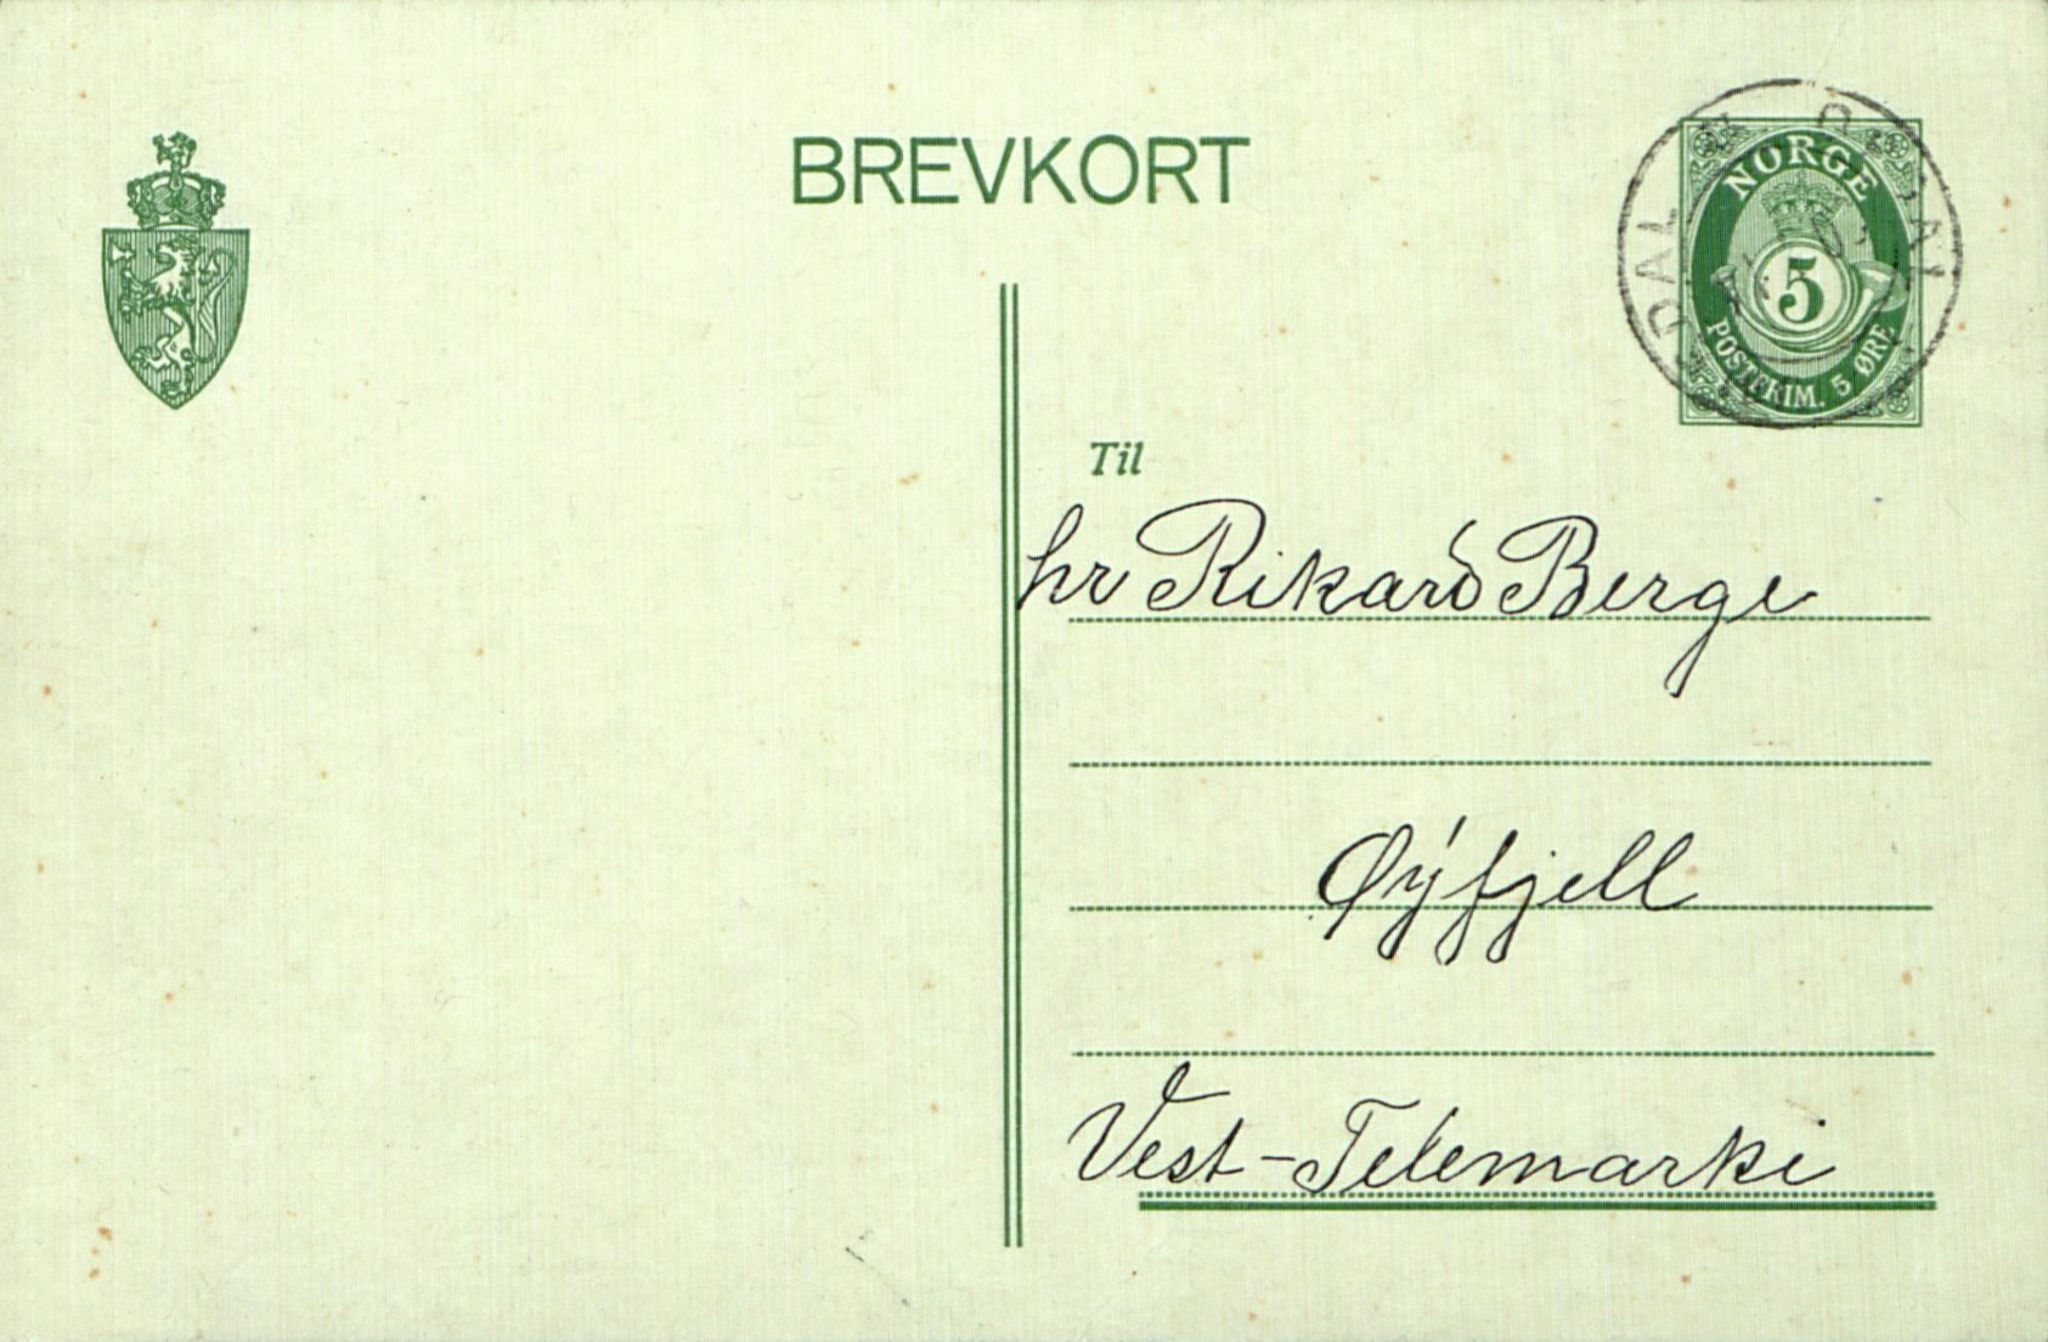 BREVKORT
NORGE
5
POSTFRIM. 5 ØRE
DAL
Til
hr Rikard Berge
Øyfjell
Vest-Telemarki